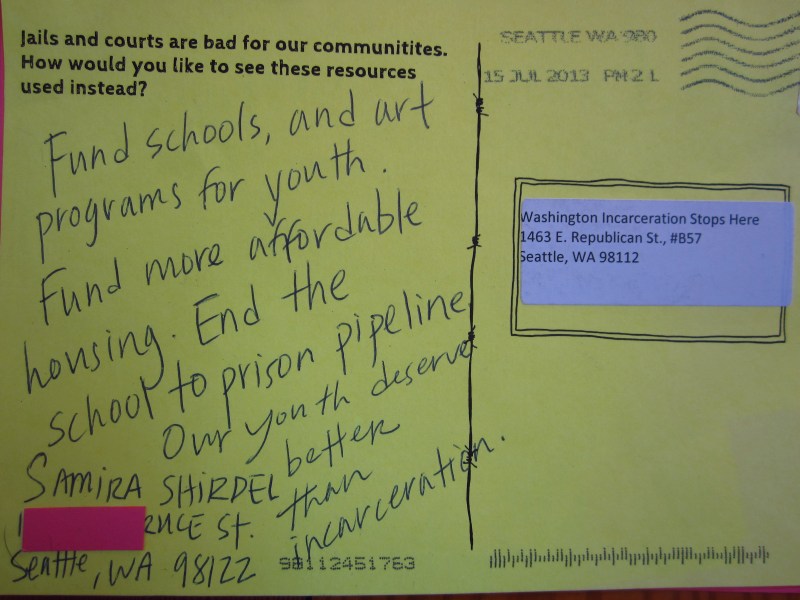 Jails and courts are bad for our communitites.
How would you like to see these resources
used instead?
Fund schools, and art
programs for youth.
Fund more affordable
housing. End the
school to prison pipeline
Our youth deserve
better
than
incarceration.
SAMIRA SHIRDEL
St.
Seattle, WA 98122
SEATTLE WA 980
15 JUL 2013 PM 2 L
Washington Incarceration Stops Here
1463 E. Republican St., #B57
Seattle, WA 98112
98112451763